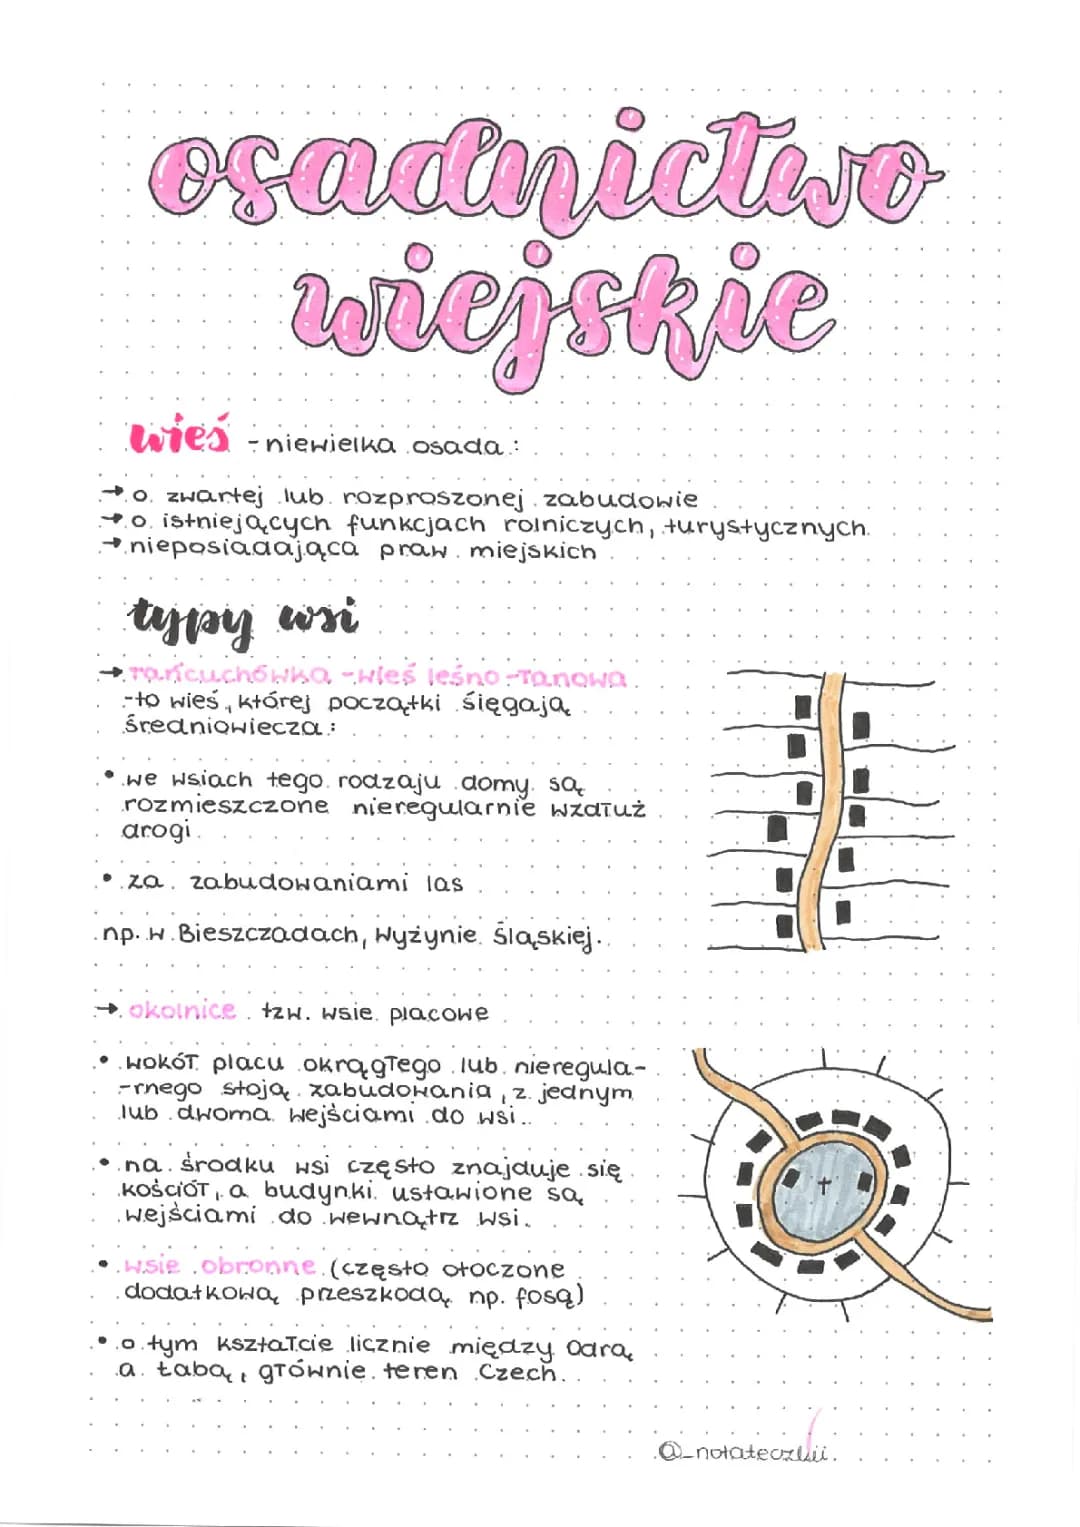 osadnictwo
wiejskie
wieś - niewielka osada:
→ o zwartej lub rozproszonej zabudowie
→ o istniejących funkcjach rolniczych, turystycznych
→ nieposiadająca praw miejskich
typy wsi
→ łańcuchówka - wieś leśno-łanowa
-to wieś, której początki sięgają
średniowiecza:
• we wsiach tego rodzaju domy są
rozmieszczone nieregularnie wzdłuż
drogi
• za zabudowaniami las
np. w Bieszczadach, Wyżynie Śląskiej.
→ okolnice tzw. wsie placowe
• wokół placu okrągłego lub nieregula-
-rnego stoją zabudowania, z jednym
lub dwoma wejściami do wsi.
• na środku wsi często znajduje się
kościół, a budynki ustawione są
wejściami do wewnątrz wsi.
• wsie obronne (często otoczone
dodatkową przeszkodą np. fosą)
• o tym kształcie licznie między Odrą
a Łabą, głównie teren Czech.
@_notateczkii